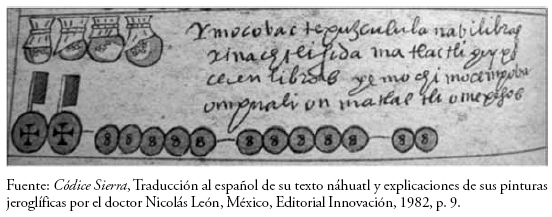 Ymocobac tepuzculula nabi libras
xinachtli sida matlactli
cecen libras ye mochi mocempoba
ompuali on matlactli omepesos
Fuente: Códice Sierra, Traducción al español de su texto náhuatl y explicaciones de sus pinturas
jeroglíficas por el doctor Nicolás León, México, Editorial Innovación, 1982, p. 9.